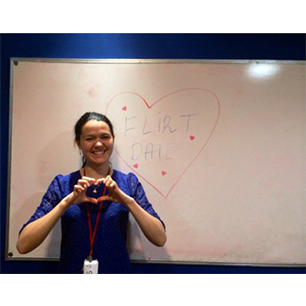 FLIRT
DATE